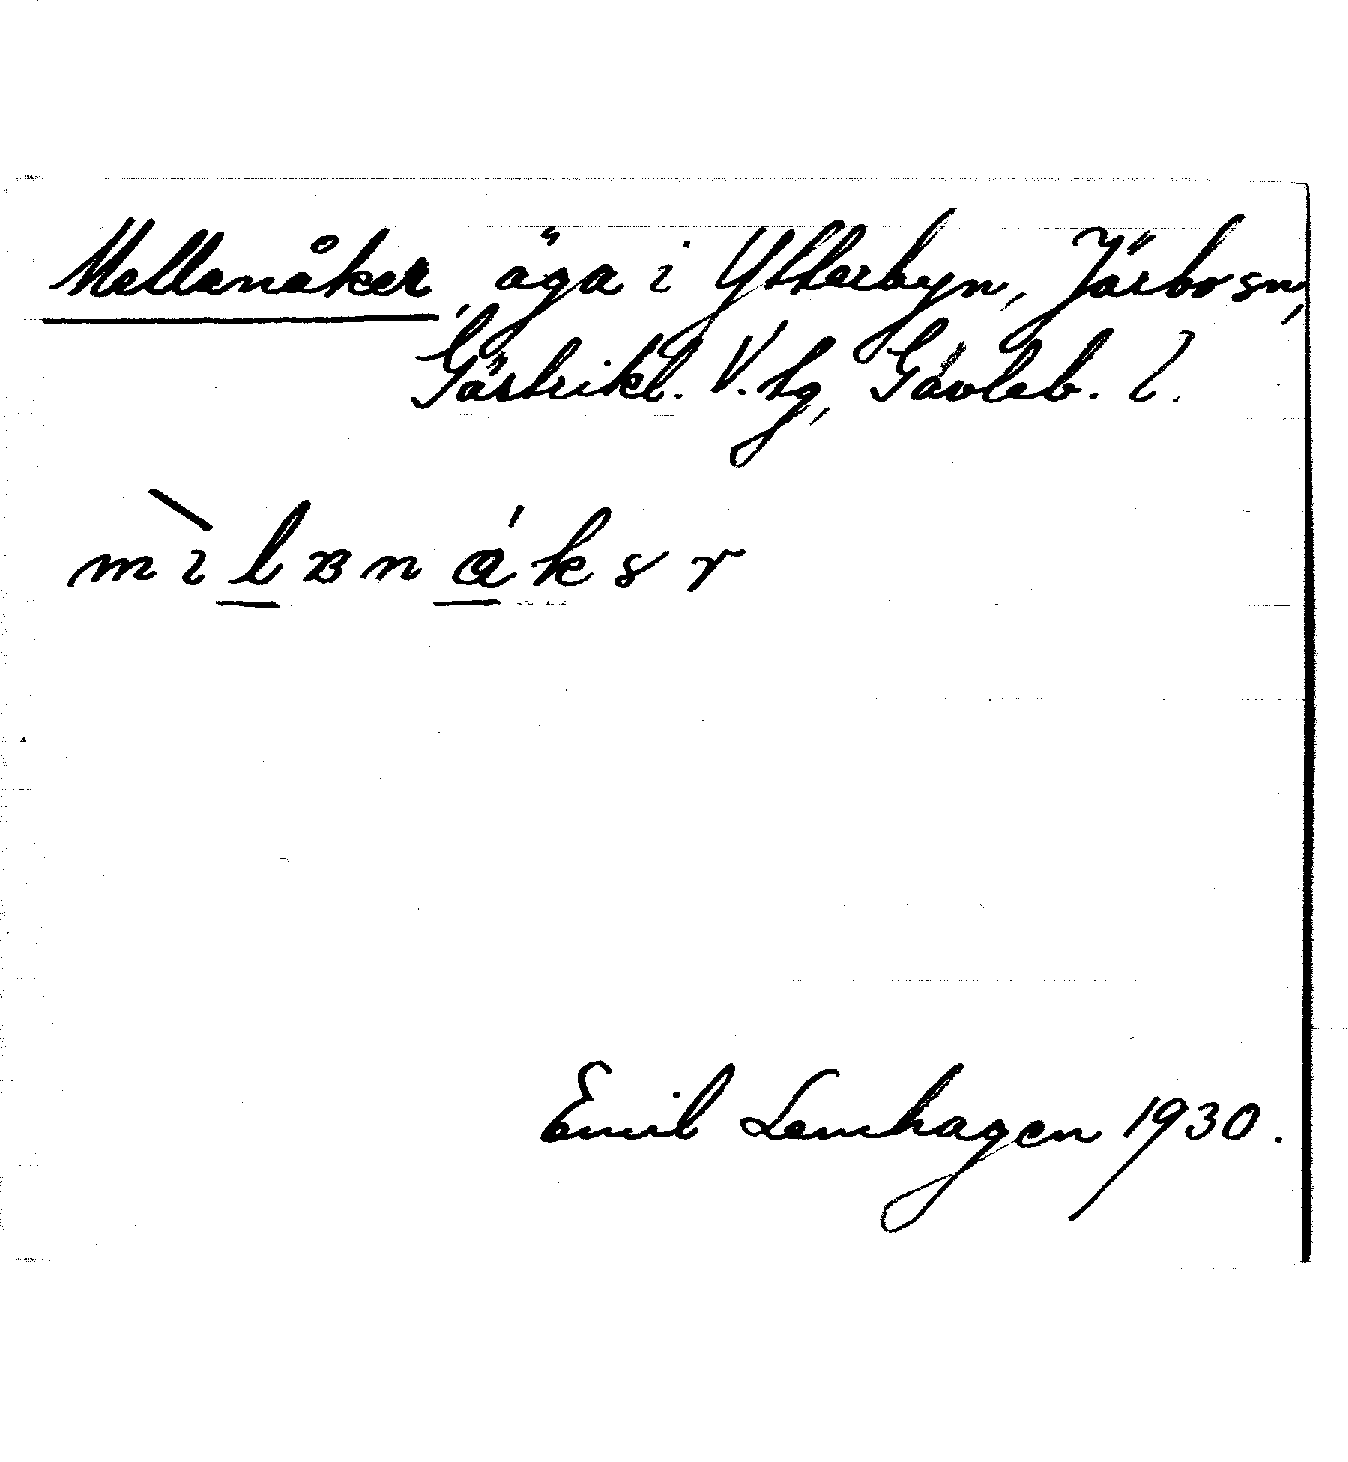 Mellanåker, äga i Ytterbyn, Järbo sn,
Gästrikl. V. tg, Gävleb. l.
Emil Lennhagen 1930.